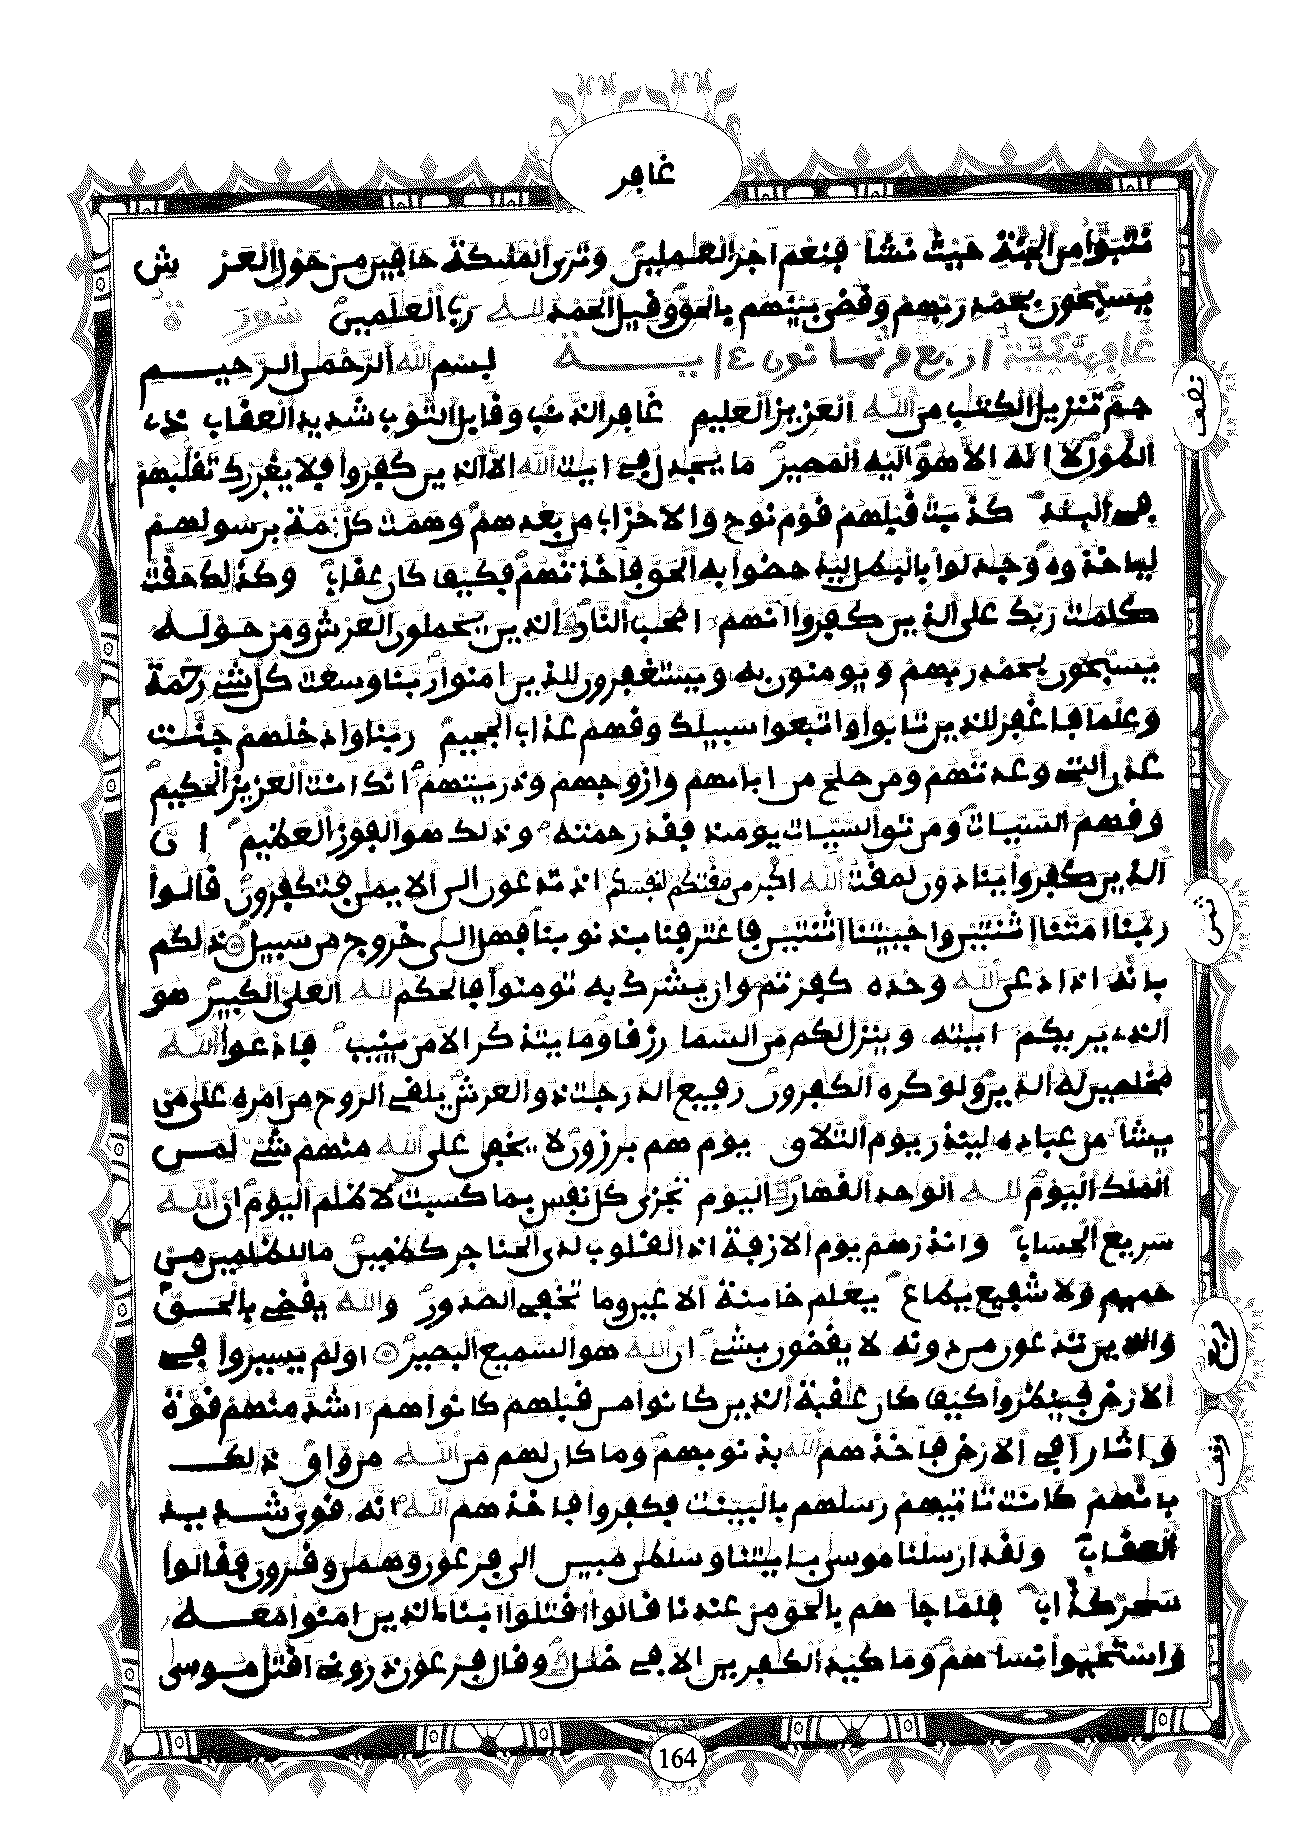 غافر
نتبوأ من الجنة حيث نشا فنعم اجر العملين وترى الملئكة حافين من حول العرش
يسبحون بحمد ربهم وقضى بينهم بالحق وقيل الحمد لله رب العلمين سورة
غافر مكية اربع وثمانون اية بسم الله الرحمن الرحيم
حم تنزيل الكتب من الله العزيز العليم غافر الذنب وقابل التوب شديد العقاب ذي
الطول لا اله الا هو اليه المصير ما يجدل في ايت الله الا الذين كفروا فلا يغررك تقلبهم
في البلد كذبت قبلهم قوم نوح والاحزاب من بعدهم وهمت كل امة برسولهم
لياخذوه وجدلوا بالبطل ليدحضوا به الحق فاخذتهم فكيف كان عقاب وكذلك حقت
كلمت ربك على الذين كفروا انهم اصحب النار الذين يحملون العرش ومن حوله
يسبحون بحمد ربهم ويومنون به ويستغفرون للذين امنوا ربنا وسعت كل شيء رحمة
وعلما فاغفر للذين تابوا واتبعوا سبيلك وقهم عذاب الجحيم ربنا وادخلهم جنت
عدن التي وعدتهم ومن صلح من ابايهم وازوجهم وذريتهم انك انت العزيز الحكيم
وقهم السيات ومن تق السيات يوميذ فقد رحمته وذلك هو الفوز العظيم ان
الذين كفروا ينادون لمقت الله اكبر من مقتكم انفسكم اذ تدعون الى الايمن فتكفرون قالوا
ربنا امتنا اثنتين واحييتنا اثنتين فاعترفنا بذنوبنا فهل الى خروج من سبيل ذلكم
بانه اذا دعي الله وحده كفرتم وان يشرك به تومنوا فالحكم لله العلي الكبير هو
الذي يريكم ايته وينزل لكم من السما رزقا وما يتذكر الا من ينيب فادعوا الله
مخلصين له الدين ولو كره الكفرون رفيع الدرجت ذو العرش يلقي الروح من امره على من
يشا من عباده لينذر يوم التلاق يوم هم برزون لا يخفى على الله منهم شيء لمن
الملك اليوم لله الوحد القهار اليوم تجزى كل نفس بما كسبت لا ظلم اليوم ان الله
سريع الحساب وانذرهم يوم الازفة اذ القلوب لدى الحناجر كظمين ما للظلمين من
حميم ولا شفيع يطاع يعلم خاينة الاعين وما تخفي الصدور والله يقضي بالحق
والذين تدعون من دونه لا يقضون بشيء ان الله هو السميع البصير اولم يسيروا في
الارض فينظروا كيف كان عقبة الذين كانوا من قبلهم كانوا هم اشد منهم قوة
واثارا في الارض فاخذهم الله بذنوبهم وما كان لهم من الله من واق ذلك
بانهم كانت تاتيهم رسلهم بالبينت فكفروا فاخذهم الله انه قوي شديد
العقاب ولقد ارسلنا موسى بايتنا وسلطن مبين الى فرعون وهمن وقرون فقالوا
سحر كذاب فلما جاهم بالحق من عندنا قالوا اقتلوا ابنا الذين امنوا معه
واستحيوا نساهم وما كيد الكفرين الا في ضلل وقال فرعون ذروني اقتل موسى
نصف
ثمن
ربع
وقف
164